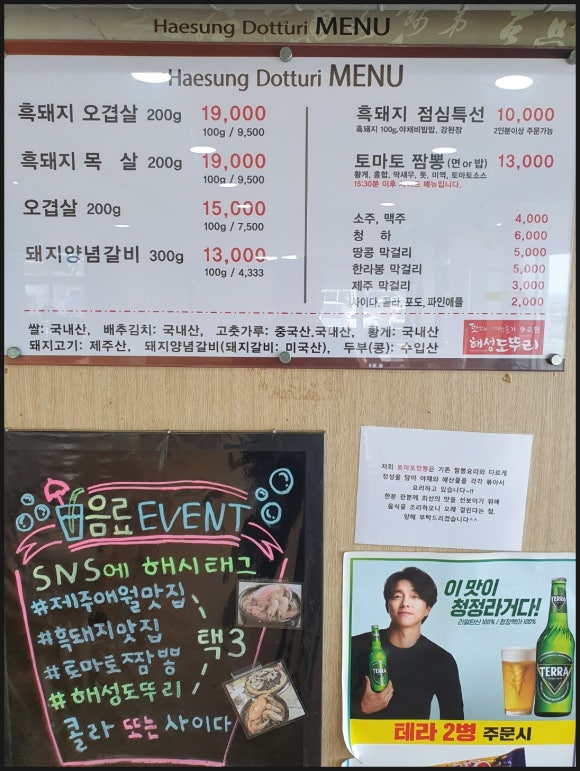 Haesung Dotturi MENU
Haesung Dotturi MENU
흑돼지 오겹살 200g 19,000
100g / 9,500
흑돼지 목 살 200g 19,000
100g / 9,500
오겹살 200g 15,000
100g / 7,500
돼지양념갈비 300g 13,000
100g / 4,333
흑돼지 점심특선 10,000
흑돼지 100g,야채비빔밥, 강된장 2인분이상 주문가능
토마토 짬뽕 (면or밥) 13,000
황게, 홍합, 딱새우, 톳, 미역, 토마토소스
15:30분 이후 메뉴입니다.
소주, 맥주 4,000
청 하 6,000
땅콩 막걸리 5,000
한라봉 막걸리 5,000
제주 막걸리 3,000
사이다, 콜라, 포도, 파인애플 2,000
쌀: 국내산, 배추김치: 국내산, 고춧가루: 중국산,국내산, 황게: 국내산
돼지고기: 제주산, 돼지양념갈비(돼지갈비: 미국산), 두부(콩): 수입산
해성도뚜리
저희 토마토짬뽕은 기존 짬뽕요리와 다르게
정성을 담아 야채와 해산물을 각각 볶아서
요리하고 있습니다~!!
한분 한분께 최선의 맛을 선보이기 위해
음식을 조리하오니 오래 걸린다는 점,
양해 부탁드리겠습니다^^
음료 EVENT
SNS에 해시태그
#제주애월맛집
#흑돼지맛집
#토마토짬뽕
#해성도뚜리
택3
콜라 또는 사이다
이 맛이
청정라거다!
리얼탄산 100% / 청정맥아 100%
TERRA
TERRA
테라 2병 주문시